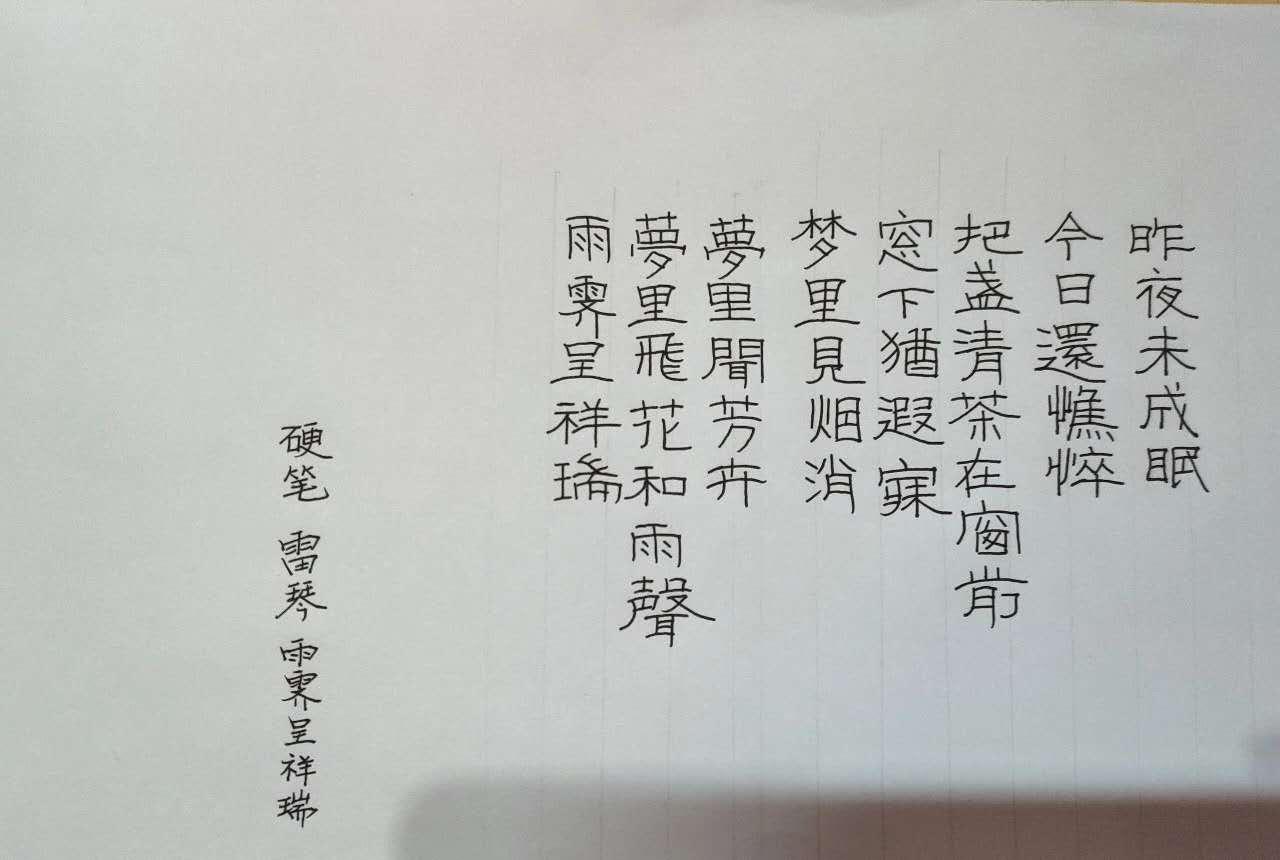 昨夜未成眠
今日還憔悴
把盏清茶在窗前
窓下猶遐寐
梦里見烟消
夢里聞芳卉
夢里飛花和雨聲
雨霁呈祥瑞
硬笔 雷琴 雨霁呈祥瑞